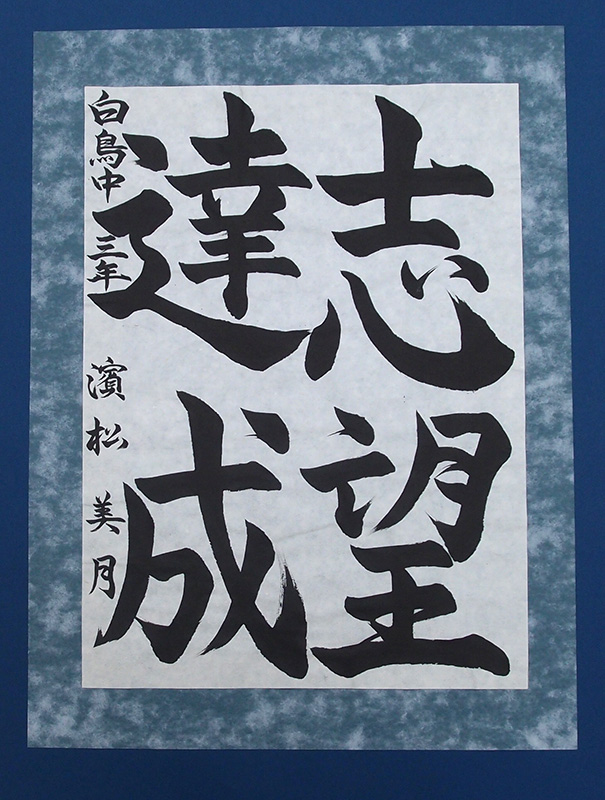 志望
達成
白鳥中三年 濱松美月